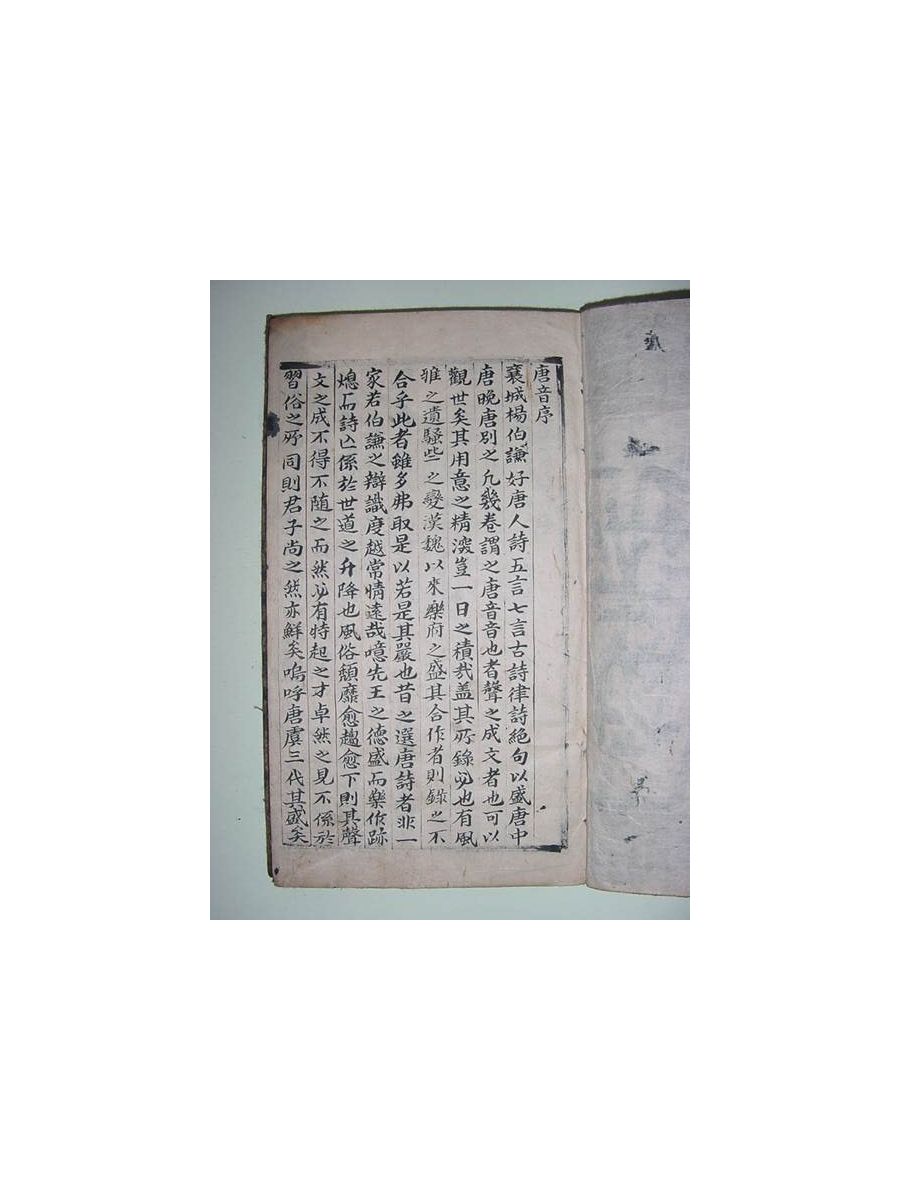 唐音序
襄城楊伯謙好唐人詩五言七言古詩律詩絕句以盛唐中
唐晚唐別之凡幾卷謂之唐音音也者聲之成文者也可以
觀世矣其用意之精深豈一日之積㢤盖其所錄必也有風
雅之遺騷些之變漢魏以來樂府之盛其合作者則錄之不
合乎此者雖多弗取是以若是其嚴也昔之選唐詩者非一
家若伯謙之辯識度越常情遠哉噫先王之德盛而樂作跡
熄而詩亡係於世道之升降也風俗頹靡愈趨愈下則其聲
文之成不得不随之而然必有特起之才卓然之見不係於
習俗之所同則君子尚之然亦鮮矣嗚呼唐虞三代其盛矣